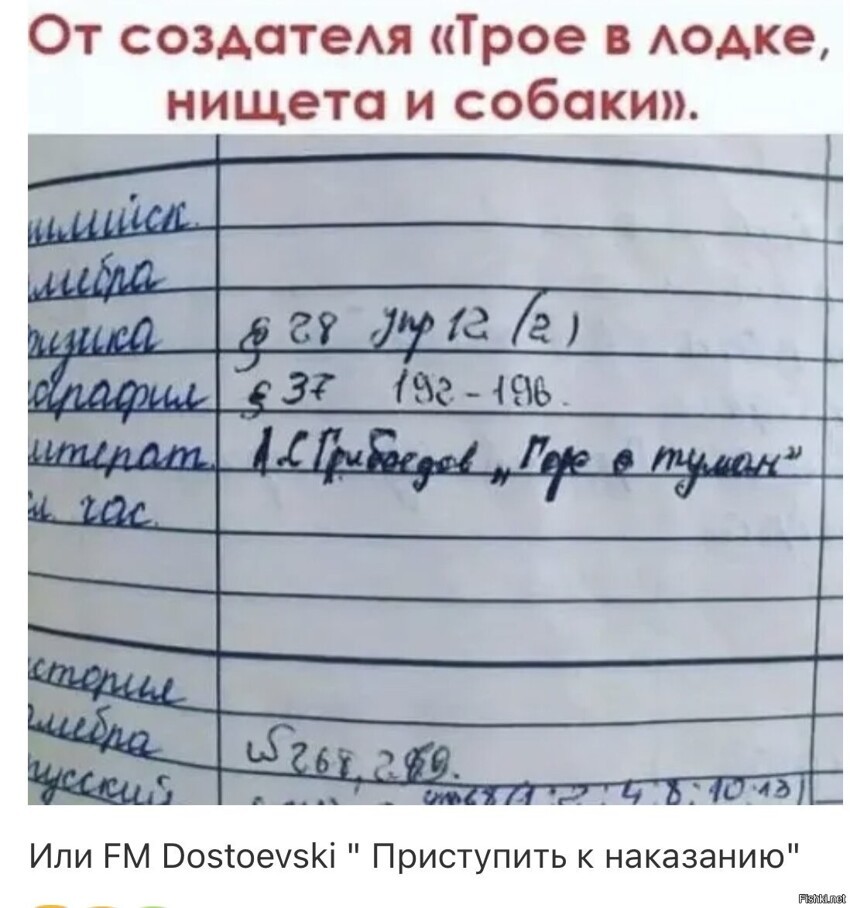 От создателя «Трое в лодке,
нищета и собаки».
глийск.
лгебра
физика § 28 упр 12 (2)
ография § 37 192-196.
итерат. А.С Грибоедов „Горе в туман"
л. час.
стория
алгебра
русский
Или FM Dostoevski " Приступить к наказанию"
Fishki.net